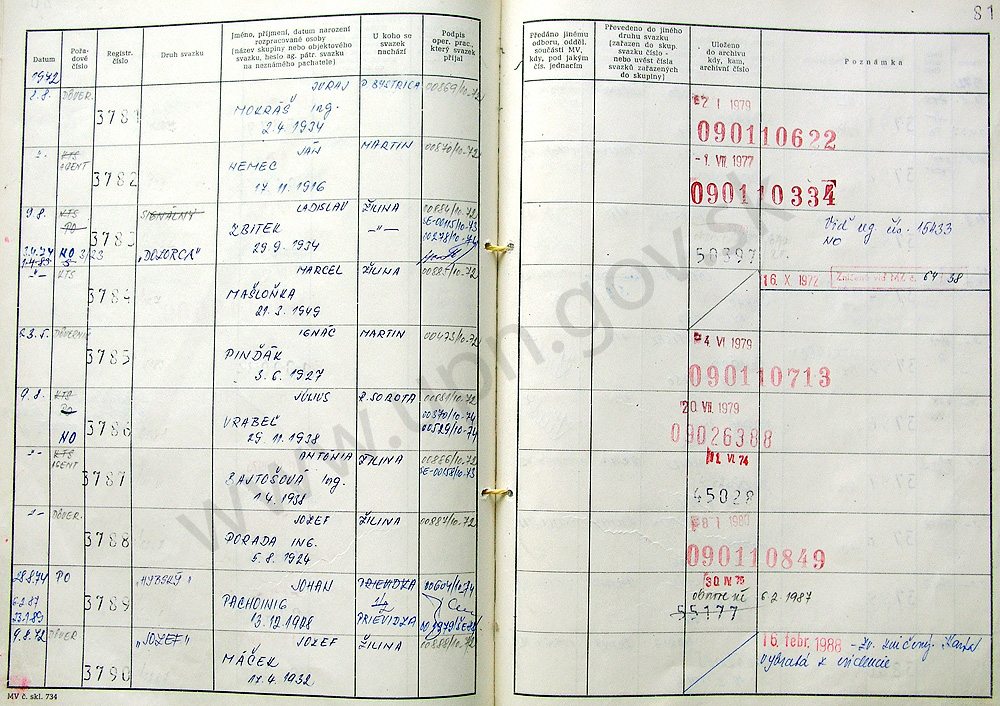 81
Datum
Pořa-
dové
číslo
Registr.
číslo
Druh svazku
Jméno, příjmení, datum narození
rozpracované osoby
[název skupiny nebo objektového
svazku, heslo ag. pátr. svazku
na neznámého pachatele]
U koho se
svazek
nachází
Podpis
oper. prac.,
který svazek
přijal
Předáno jinému
odboru, odděl.
součásti MV,
kdy, pod jakým
čís. jednacím
Převedeno do jiného
druhu svazku
[zařazen do skup.
svazku číslo -
nebo uvést čísla
svazků zařazených
do skupiny]
Uloženo
do archivu
kdy, kam,
archivní číslo
Poznámka
1972
2.8. DÔVER. 3781 JURAJ P. BYSTRICA 00869/10-72
MOKRÁŠ Ing.
2.4. 1934
I 1979
090110622
KTS
AGENT 3782 JÁN MARTIN 00870/10-72
NEMEC
17. 11. 1916
-1. VII. 1977
090110334
9.8. KTS SIGNÁLNY LADISLAV ŽILINA
PO 3783 ZBITEK -"-
NO 3/23 "DOZORCA" 29. 9. 1934
SE-00115/10-73
00278/10-74
50397
Viď reg čís. 15433
NO
-"- KTS 3784 MARCEL ŽILINA 00885/10-72
MAŠLONKA
21. 3. 1949
16. X 1972 64/38
23.5. DÔVERNÍK 3785 IGNÁC MARTIN 00473/10-72
PINĎÁK
3. 6. 1927
4 VI 1979
090110713
9.8. KTS 3786 JÚLIUS R. SOBOTA
PO VRABEĽ 00370/10-74
NO 29. 11. 1938 00529/10-74
20. VII. 1979
09026388
-"- KTS
AGENT 3787 ANTONIA ŽILINA 00886/10-72
BAJTOŠOVÁ Ing. SE-00158/10-73
1. 4. 1938
VI. 74
45028
-"- DÔVER. 3788 JOZEF ŽILINA 00887/10-72
PORADA ING.
5. 8. 1924
I 1980
090110849
28.8.74 PO 3789 "HYBSKÝ" JOHAN PRIEVIDZA 00604/10-74
6.2.87 PACHOINIG
23.1.89 13. 12. 1908 PRIEVIDZA
30. IV. 75
obnovené 6.2.1987
55177
9.8.72 DÔVER. 3790 "JOZEF" JOZEF ŽILINA 00888/10-72
MÁČEK
17. 4. 1932
16. febr. 1988 - Zv. zničený. Karta
vybratá z evidencie
MV č. skl. 734
www.upn.gov.sk